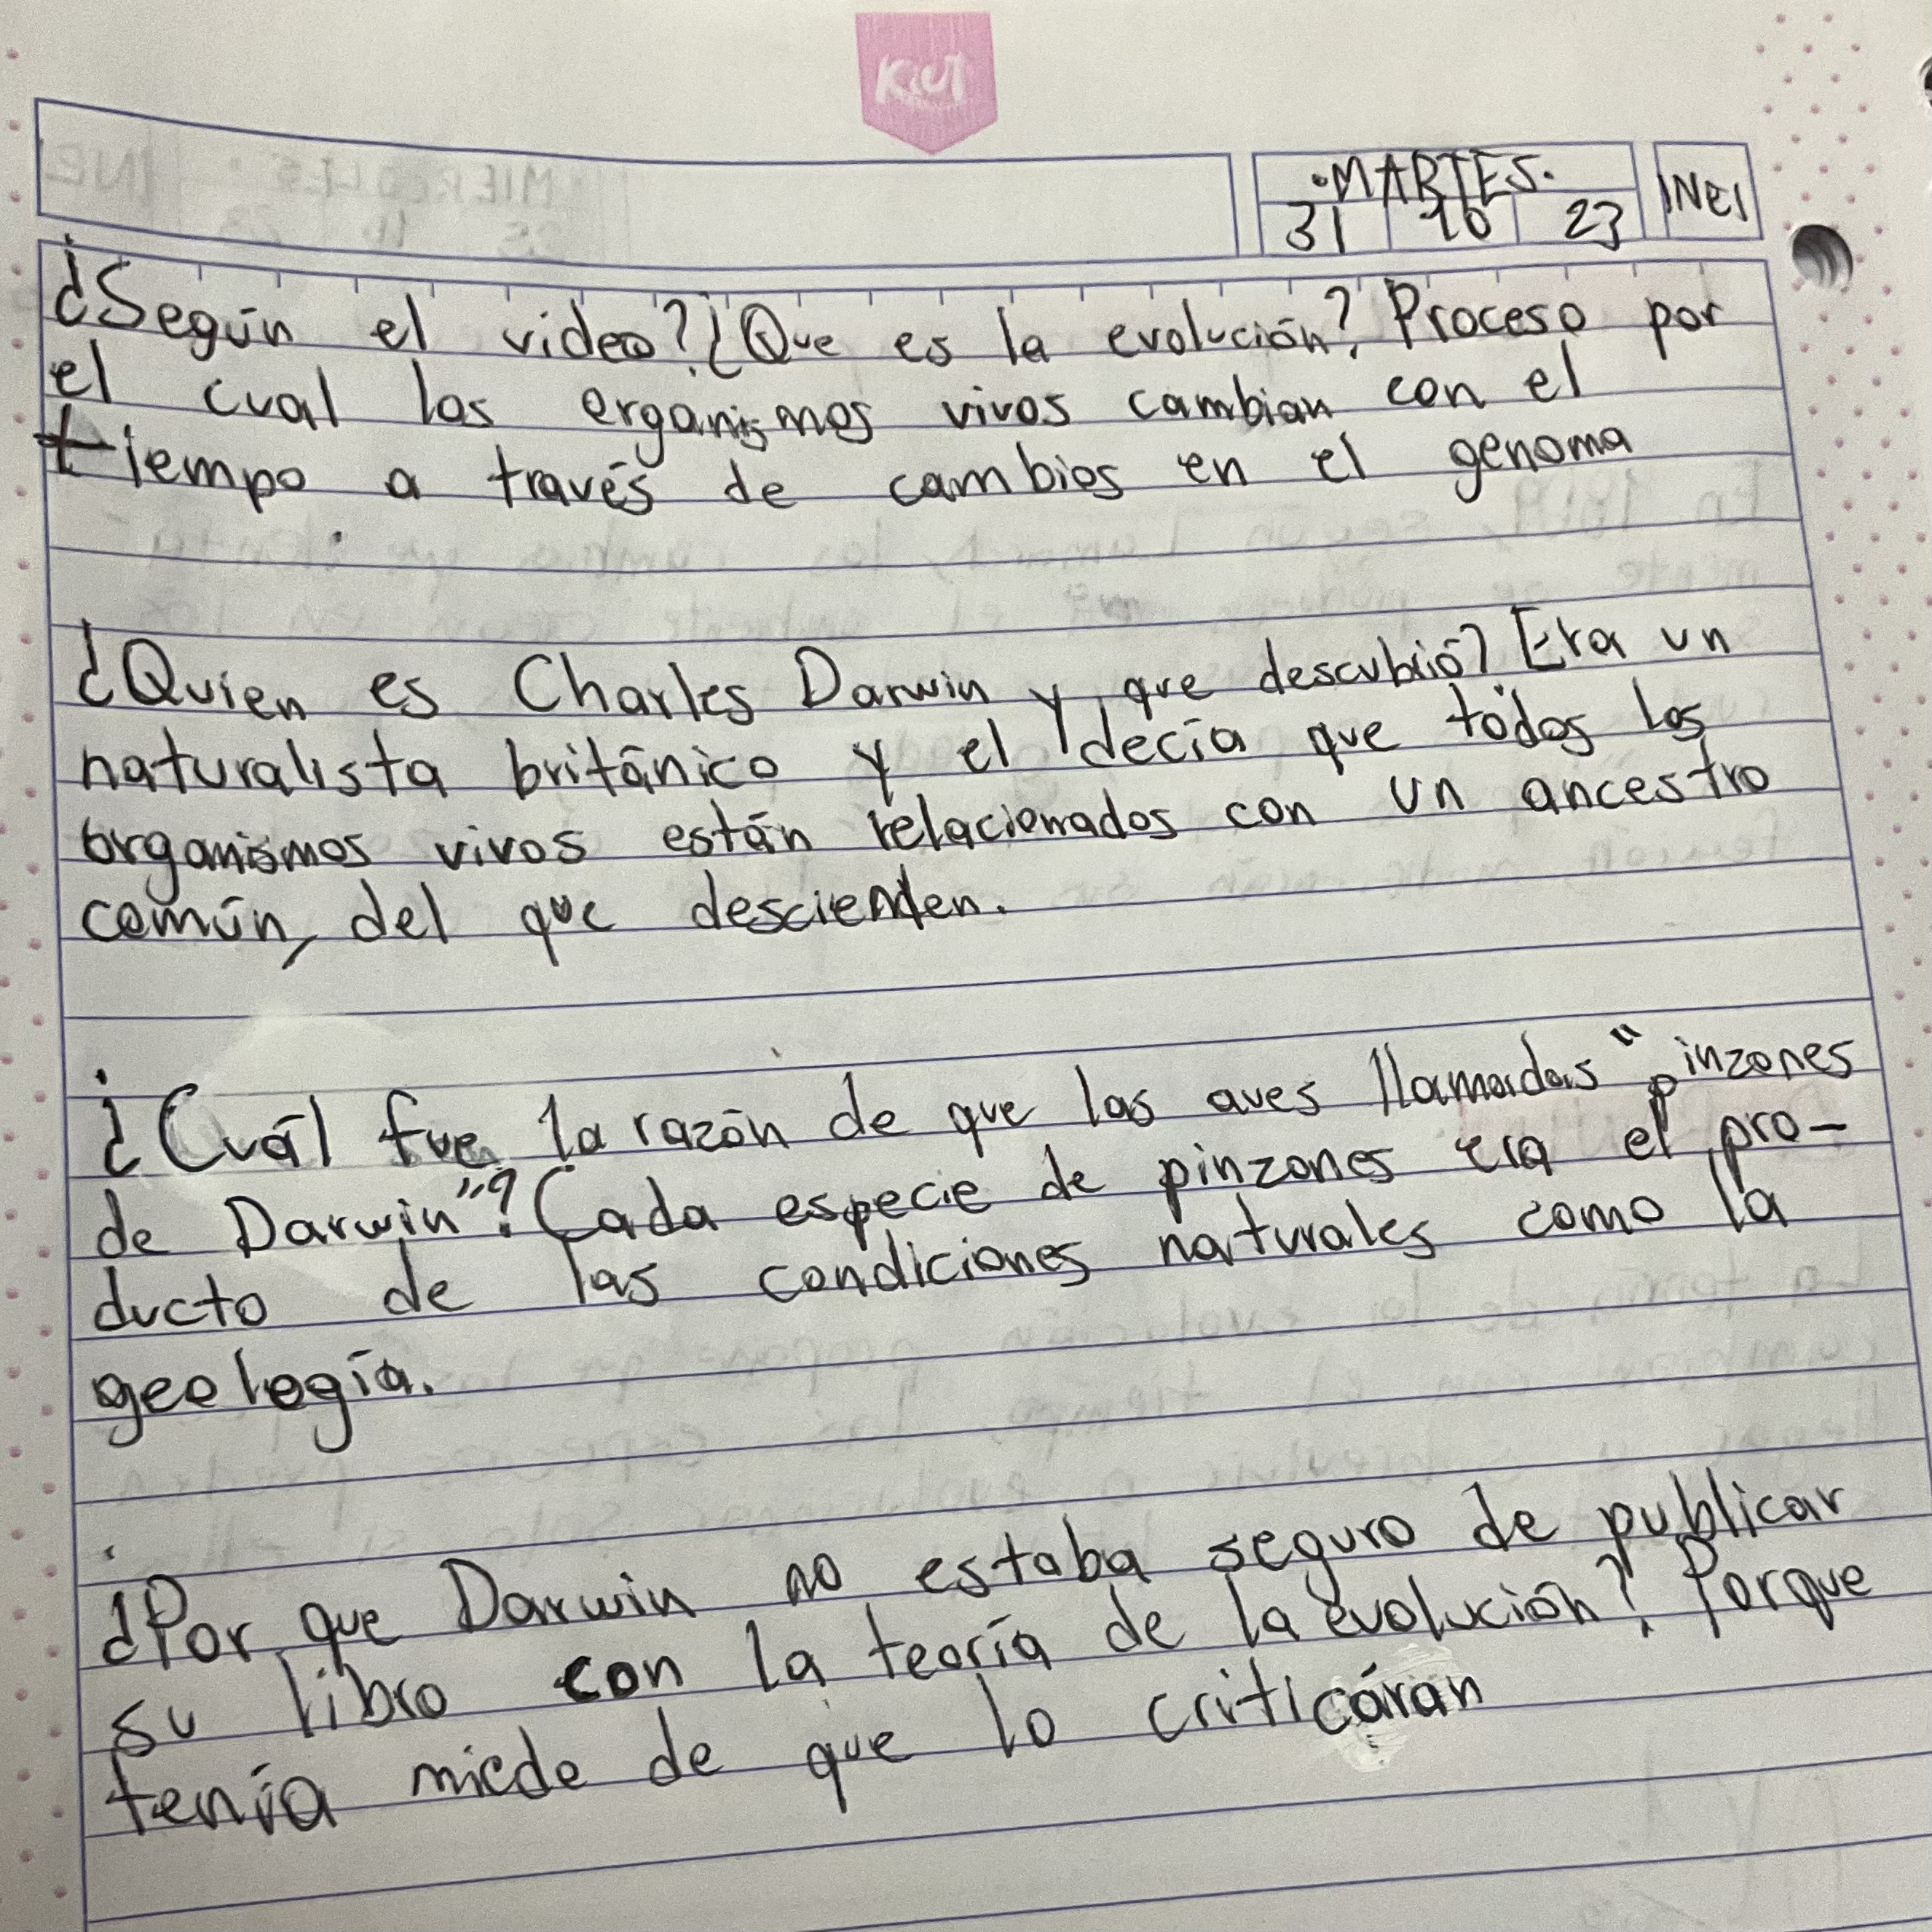 Kiut
·MARTES·
31 10 23
INEI
¿Según el video?¿Que es la evolución? Proceso por
el cual los organismos vivos cambian con el
tiempo a través de cambios en el genoma
¿Quien es Charles Darwin y que descubrió? Era un
naturalista británico y el decía que todos los
organismos vivos están relacionados con un ancestro
común, del que descienden.
¿Cuál fue la razón de que las aves llamadas "pinzones
de Darwin"? Cada especie de pinzones era el pro-
ducto de las condiciones naturales como la
geología.
¿Por que Darwin no estaba seguro de publicar
su libro con la teoría de la evolución? Porque
tenía miedo de que lo criticáran